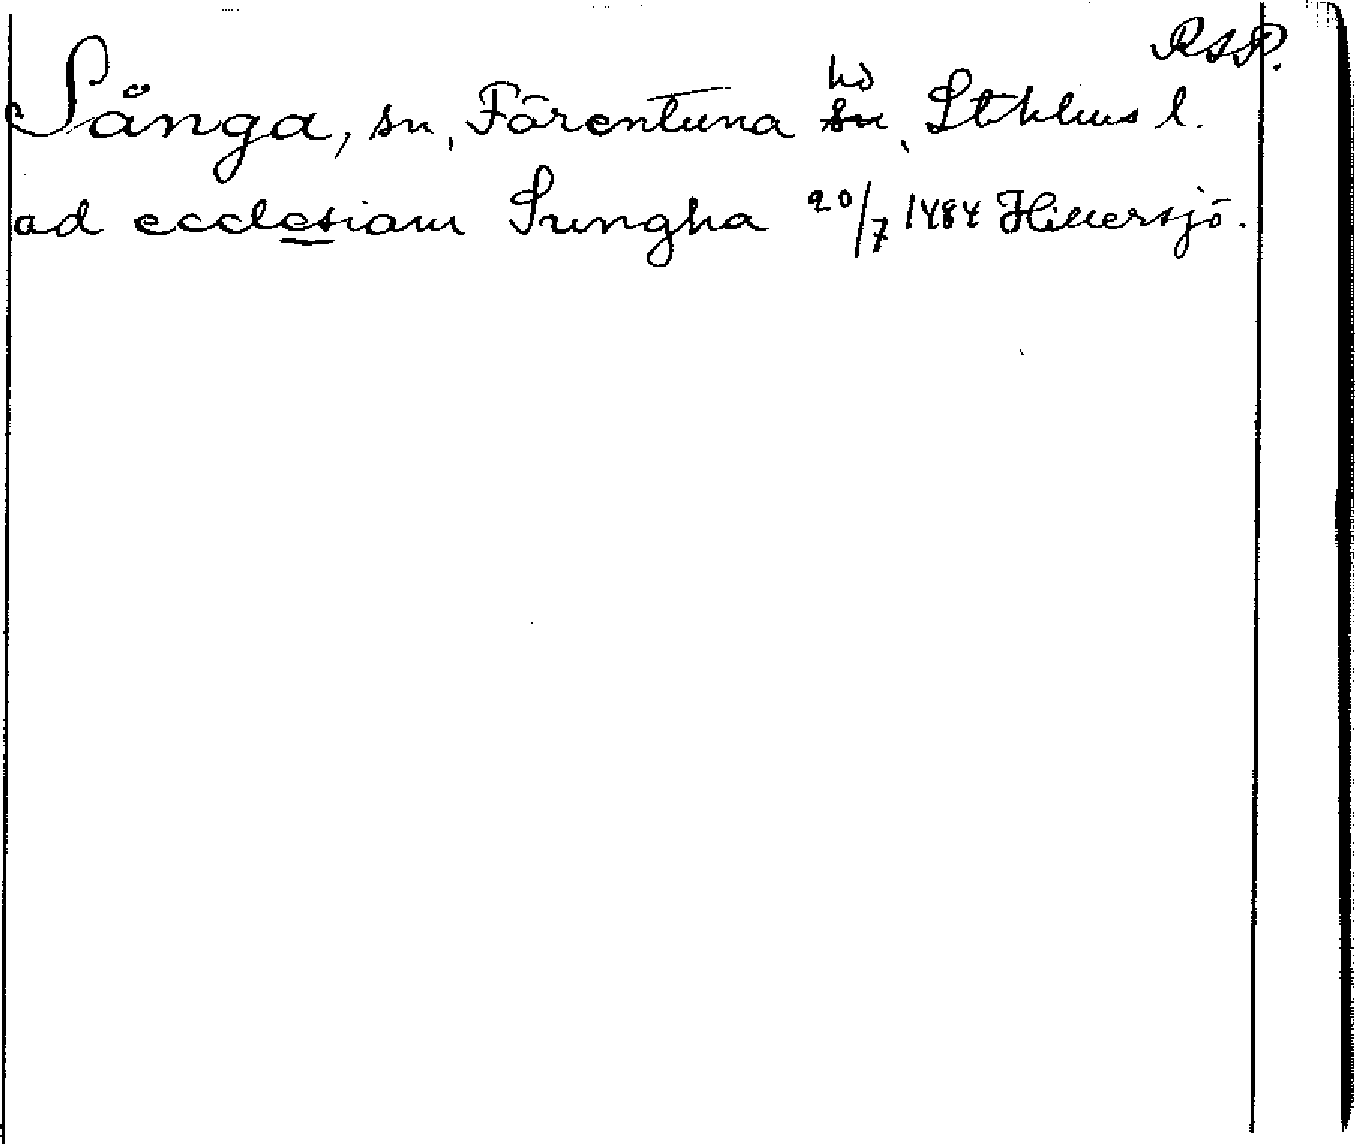 RSP.
Sånga, sn, Färentuna hd, Sthlms l.
ad ecclesiam Sungha 20/7 1484 Hillersjö.